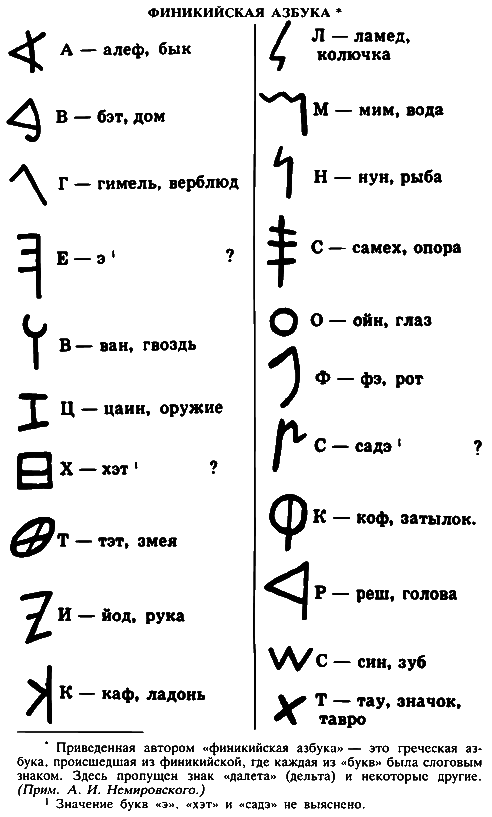 ФИНИКИЙСКАЯ АЗБУКА *
А — алеф, бык
В — бэт, дом
Г — гимель, верблюд
Е — э ¹ ?
В — ван, гвоздь
Ц — цаин, оружие
Х — хэт ¹ ?
Т — тэт, змея
И — йод, рука
К — каф, ладонь
Л — ламед,
колючка
М — мим, вода
Н — нун, рыба
С — самех, опора
О — ойн, глаз
Ф — фэ, рот
С — садэ ¹ ?
К — коф, затылок.
Р — реш, голова
С — син, зуб
Т — тау, значок,
тавро
* Приведенная автором «финикийская азбука» — это греческая аз-
бука, происшедшая из финикийской, где каждая из «букв» была слоговым
знаком. Здесь пропущен знак «далета» (дельта) и некоторые другие.
(Прим. А. И. Немировского.)
¹ Значение букв «э», «хэт» и «садэ» не выяснено.